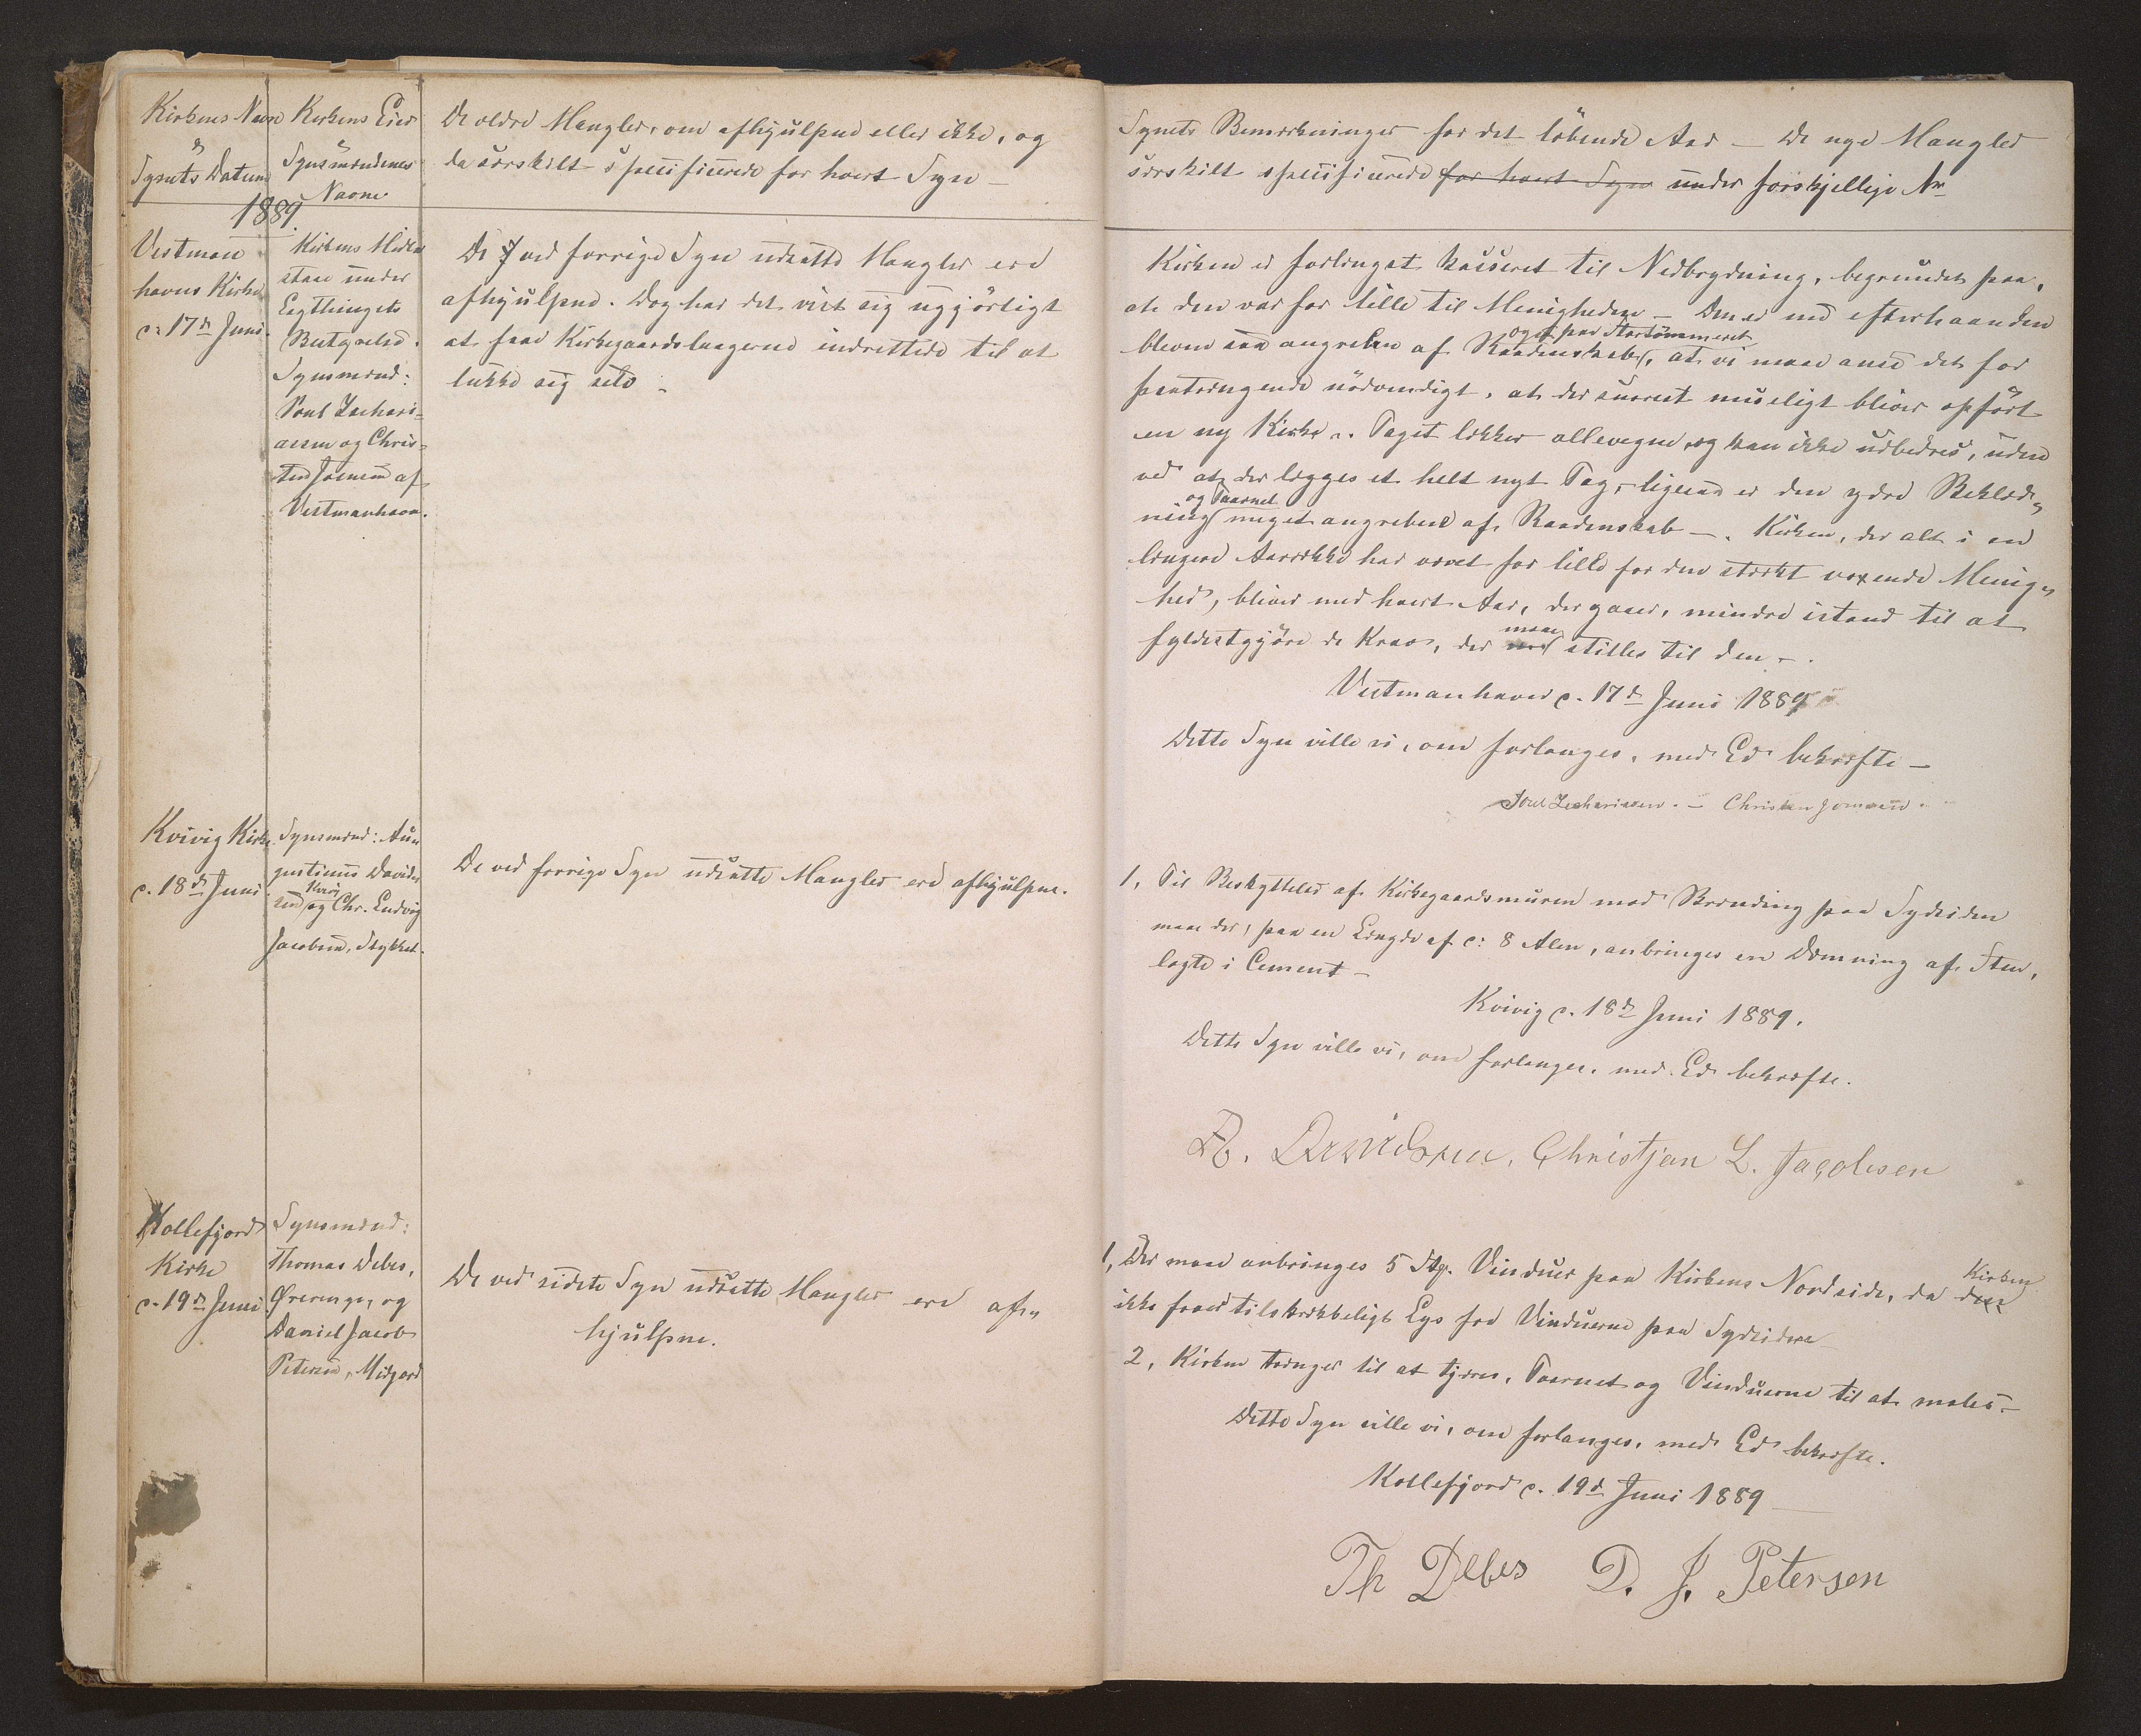 Kirkens Navn
&
Synets Datum
Kirkens Eier
&
Synsmændenes
Navne
De ældre Mangler, om afhjulpne eller ikke, og
da særskilt specificerede for hvert Syn –
1889.
Vestman-
havns Kirke
d. 17de Juni.
Kirkens Midler
staae under
Lagthingets
Bestyrelse.
Synsmænd:
Poul Zachari-
assen og Chris-
ten Joensen af
Vestmanhavn.
De ved forrige Syn udsatte Mangler ere
afhjulpne. Dog har det vist sig ugjörligt
at faae Kirkegaardslaagerne indrettede til at
lukke sig selv –
Kvivig Kirke
d. 18de Juni.
Synsmænd: Au-
gustinus David-
sen, Kvivig og Chr. Ludvig
Jacobsen, Stykket.
De ved forrige Syn udsatte Mangler ere afhjulpne.
Kollefjord
Kirke
d. 19de Juni
Synsmænd:
Thomas Debes,
Ørerenge, og
Daniel Jacob
Petersen, Midgard
De ved sidste Syn udsatte Mangler ere af-
hjulpne.
Synets Bemærkninger for det löbende Aar – De nye Mangler
særskilt specificerede for hvert Syn under forskjellige Nr
Kirken er forlængst kasseret til Nedbrydning, begrundet paa,
at den var for lille til Menigheden – Den er nu efterhaanden
bleven saa angreben af Raadenskab, ogsaa paa Stortömmeret, at vi maae ansee det for
paatrængende nödvendigt, at der snarest mueligt bliver opfört
en ny Kirke. Taget lækker allevegne og kan ikke udbedres, uden
ved at der lægges et helt nyt Tag, ligesaa er den ydre Beklæd-
ning og Taarnet meget angrebne af Raadenskab –. Kirken, der alt i en
længere Aarrække har været for lille for den stærkt voxende Menig-
hed, bliver med hvert Aar, der gaaer, mindre istand til at
fyldestgjöre de Krav, der maae stilles til den –.
Vestmanhavn d. 17de Juni 1889
Dette Syn ville vi, om forlanges, med Ed bekræfte –
Poul Zachariasen. – Christen Joensen.
1, Til Beskyttelse af Kirkegaardsmuren mod Brænding paa Sydsiden
maa der, paa en Længde af c: 8 Alen, anbringes en Dæmning af Sten,
lagte i Cement –
Kvivig d. 18de Juni 1889.
Dette Syn ville vi, om forlanges, med Ed bekræfte.
A. Davidsen, Christjan L. Jacobsen
1, Der maae anbringes 5 Stk. Vinduer paa Kirkens Nordside, da Kirken
ikke faaer tilstrækkeligt Lys fra Vinduerne paa Sydsiden
2, Kirken trænger til at tjæres, Taarnet og Vinduerne til at males –
Dette Syn ville vi, om forlanges, med Ed bekræfte.
Kollefjord d. 19de Juni 1889
Th Debes D. J. Petersen